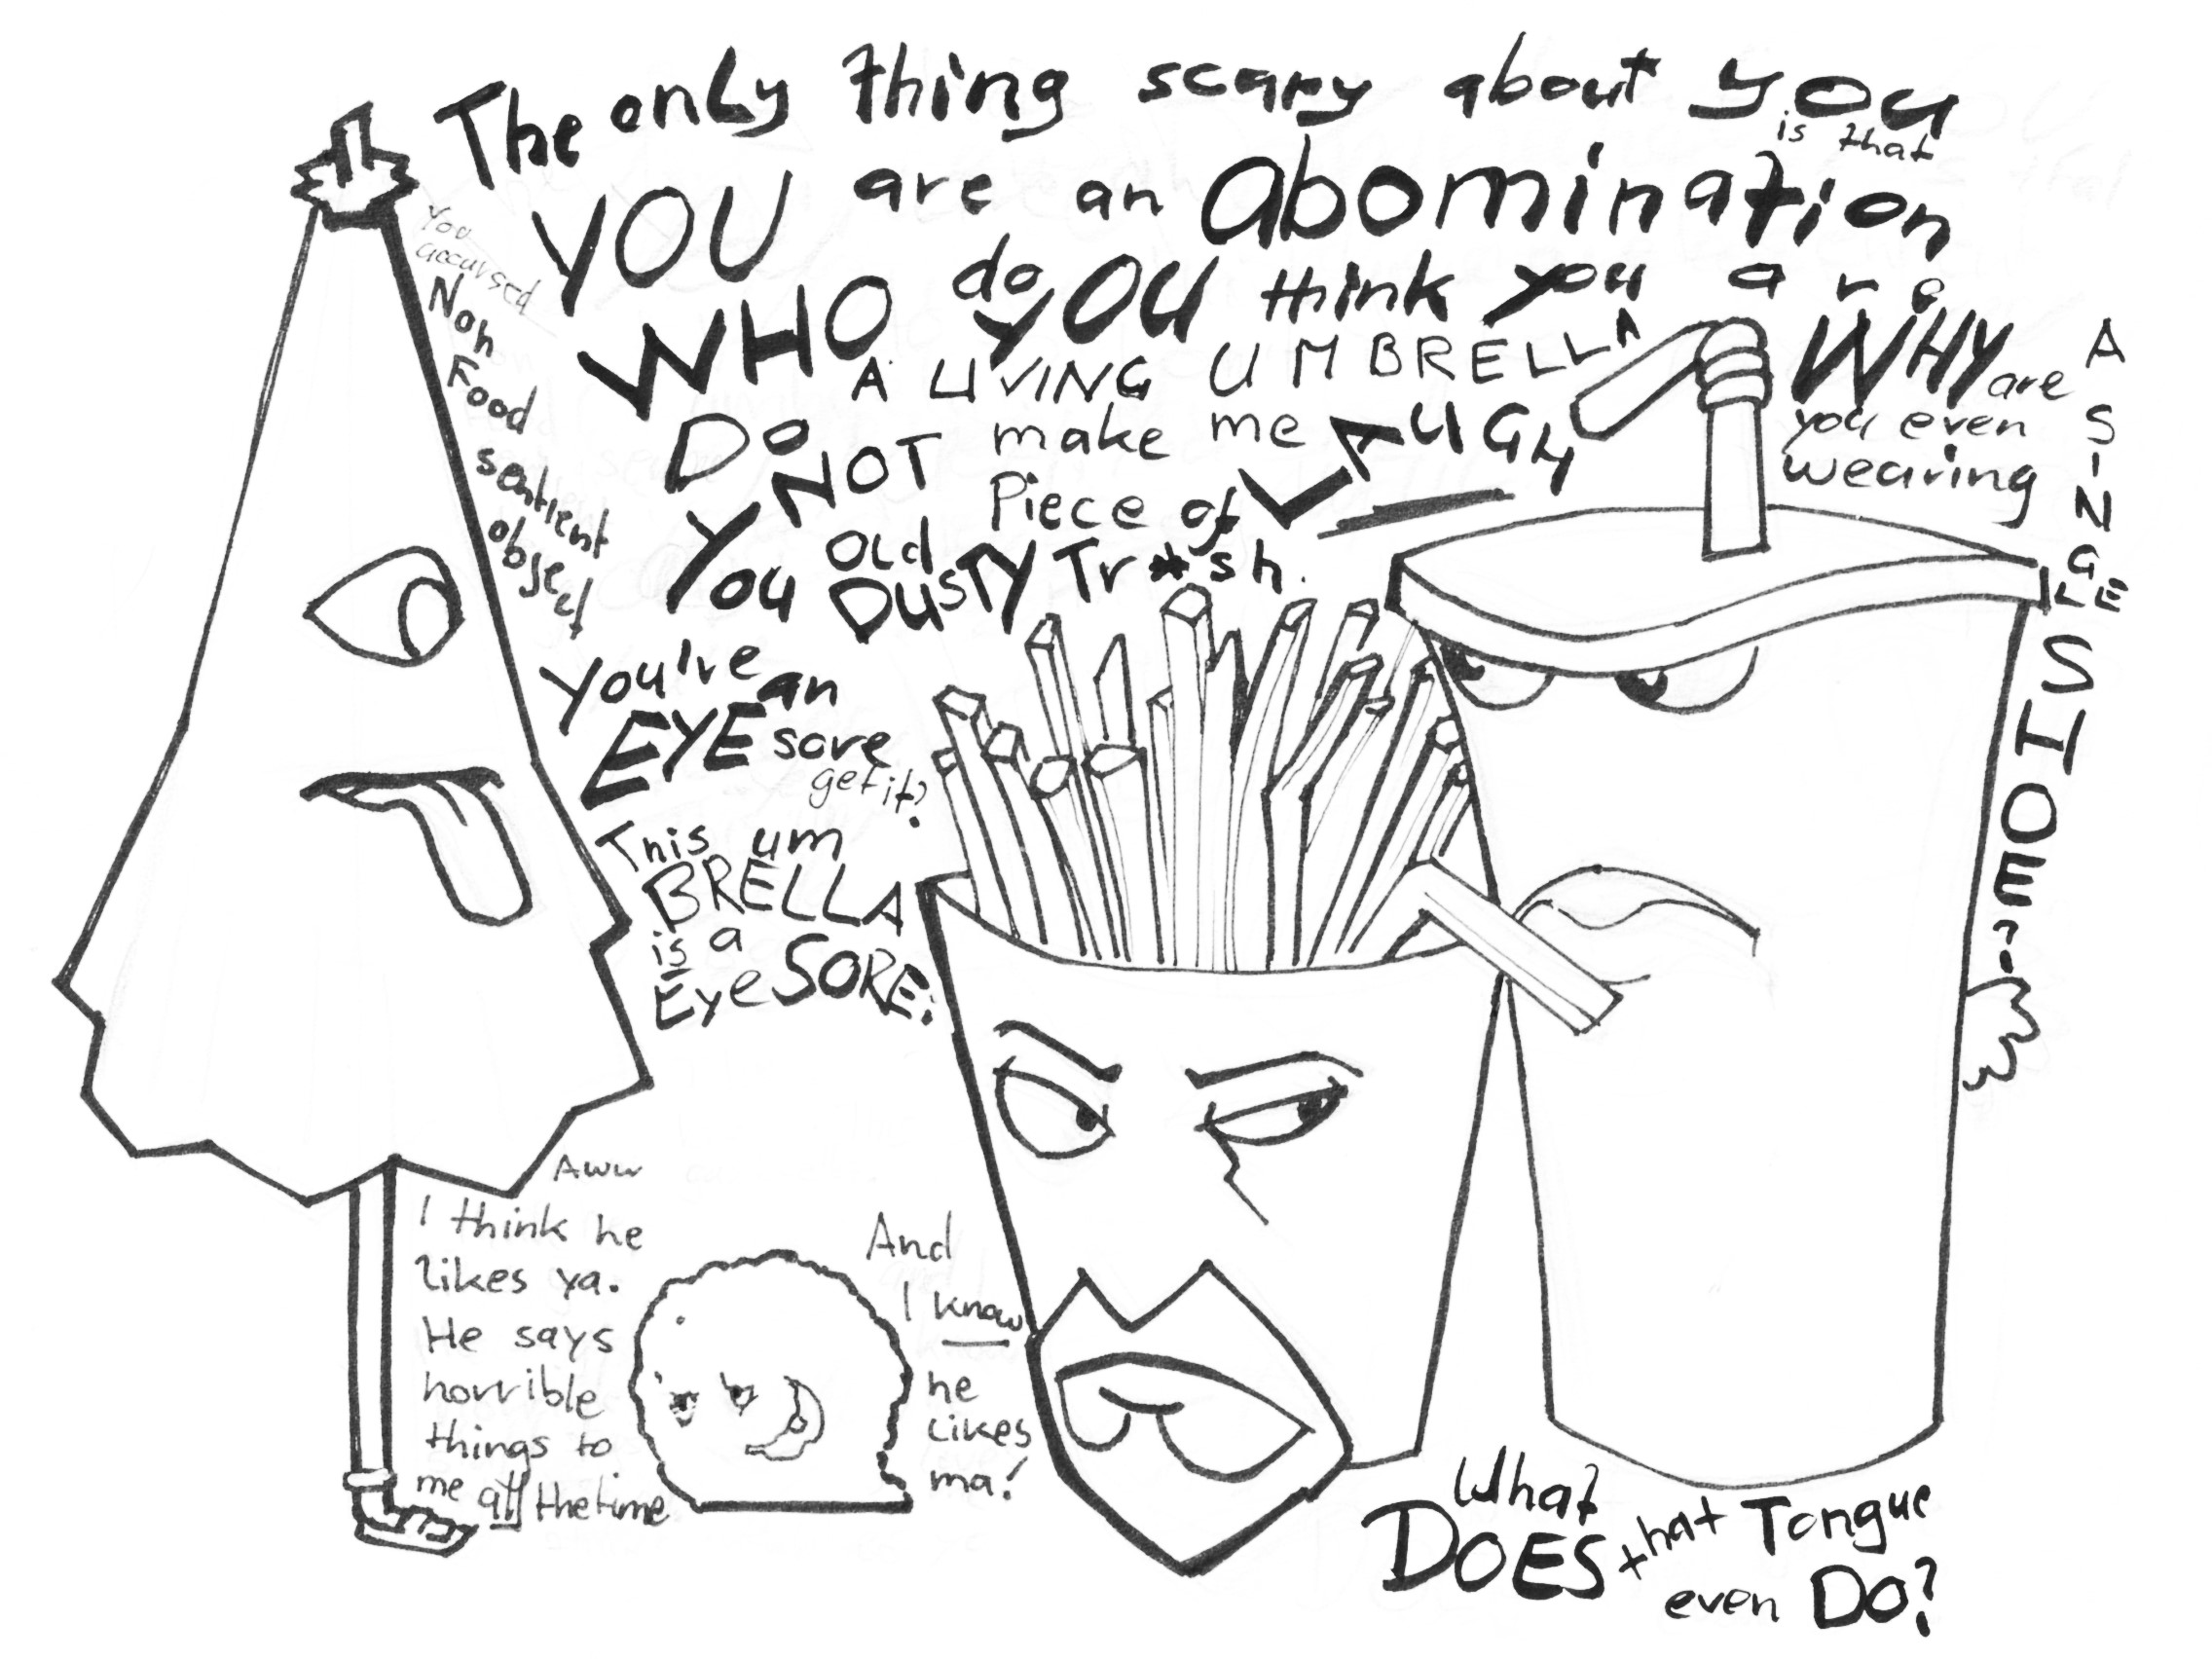 The only thing scary about you
is that
YOU are an abomination
WHO do you think you are
A LIVING UMBRELLA
Do NOT make me LAUGH
You OLD DUSTY Piece of Tr*sh.
WHY are
you even
wearing
A SINGLE SHOE?
You
accursed
Non
Food
sentient
object
You've an
EYE sore
get it?
This um
BRELLA
is a
Eye SORE.
Aww
I think he
likes ya.
He says
horrible
things to
me all the time
And
I know
he
likes
ma!
What
DOES that Tongue
even Do?